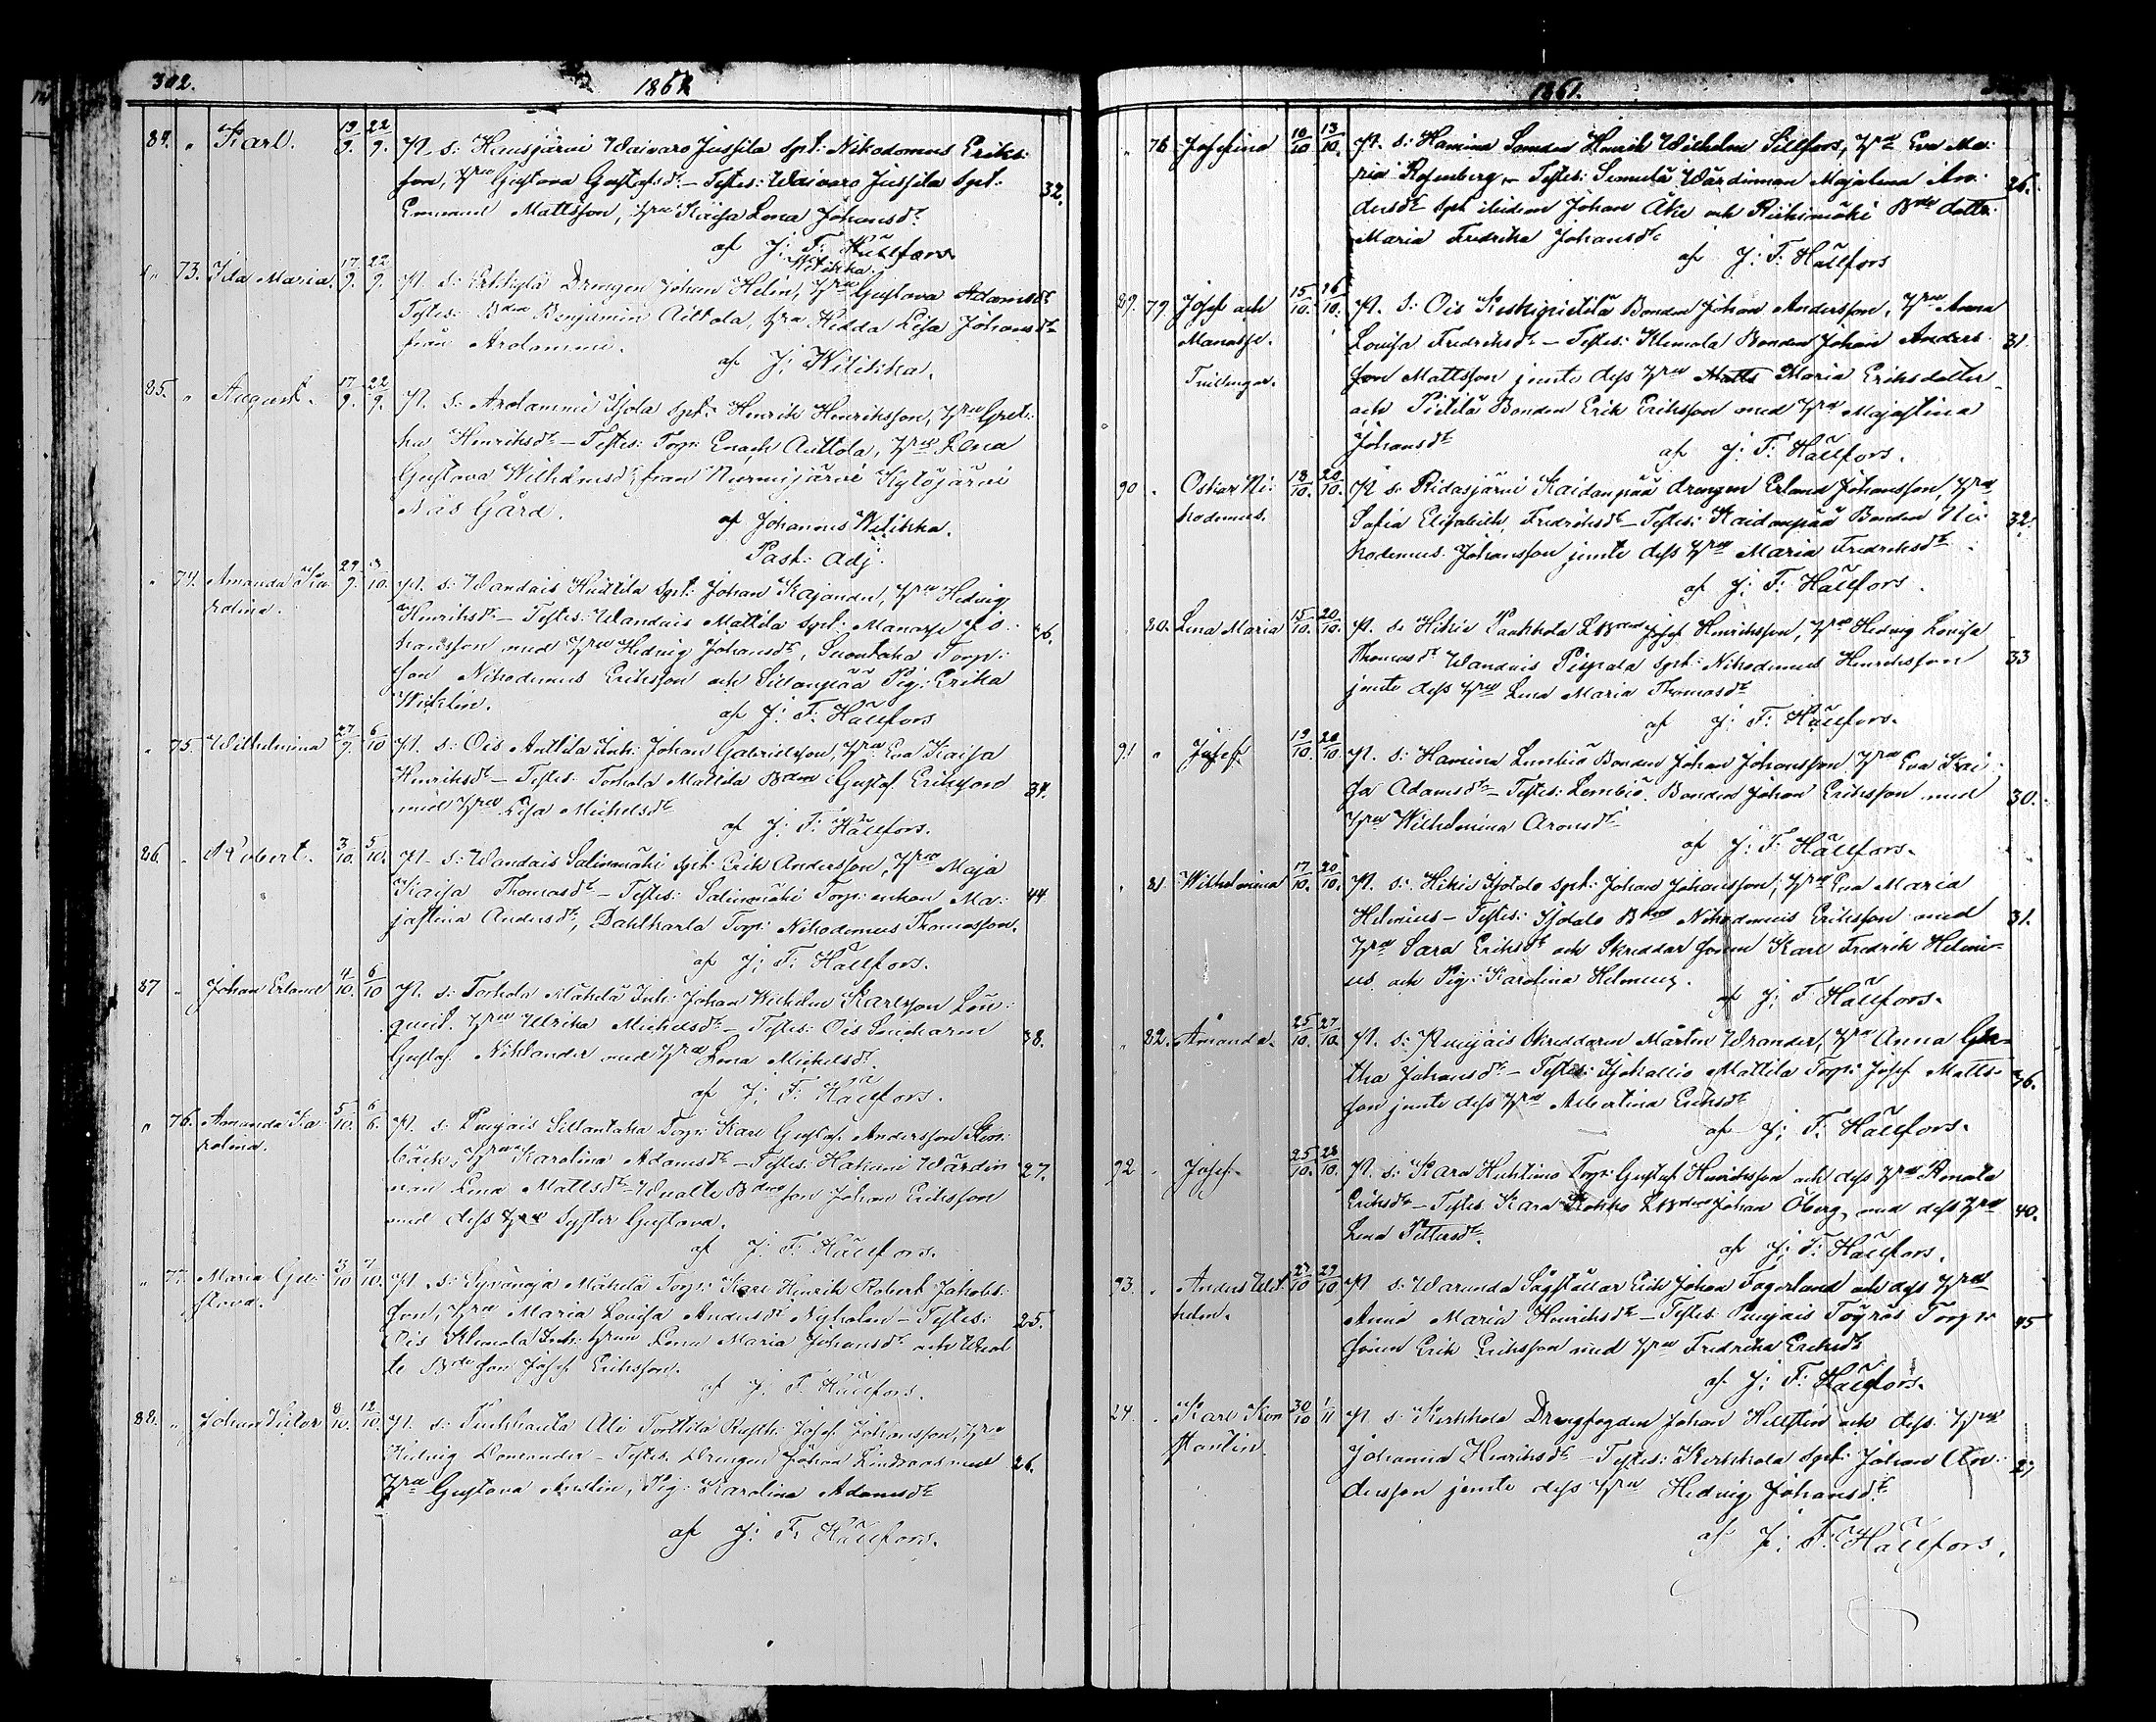 302.
1861
84. " Karl. 19/9. 22/9. N. s: Hausjärvi Waivaro Jussila Spt: Nikodemus Eriks:
son, Hru Gustava Gustafsdr – Testes: Waivaro Jussila Spt: 32.
Emanuel Mattsson, Hru Kaisa Lena Johansdr
af J: F: Hällfors
Witikka.
" 73. Ida Maria. 17/9. 22/9. N. s: Drengen Johan Helin, Hru Gustava Adamsdr
Testes: Bden Benjamin Aittola, Hru Hedda Lisa Johansdr
från Arolammi.
af J: Witikka.
85. " August. 17/9. 22/9. N. s: Arolammi Isola Spt: Henrik Henriksson, Hru Gret:
ha Henriksdr – Testes: Torp: Enoch Anttola, Hru Lena
Gustava Wilhelmsdr från Nurmijärvi Kytöjärvi
Näs Gård.
af Johannes Witikka.
Past: Adj.
" 74. Amanda Ka: 29/9. /10. N. s: Wandais Huttila Spt: Johan Kajander, Hru Hedvig
rolina. Henriksdr – Testes: Wandais Mattila Spt: Manasse Jo:
hansson med Hru Hedvig Johansdr, Suontaka Torp: 46.
son Nikodemus Eriksson och Sillanpää Pig: Erika
Wiklin.
af J: F: Hällfors
" 75. Wilhelmina 27/9. 6/10 N. s: Ois Anttila Inh: Johan Gabrielsson, Hru Eva Kaisa
Henriksdr – Testes: Torhola Mattila Bden Gustaf Eriksson 34.
med Hru Lisa Michelsdr
af J: F: Hällfors.
86. " Robert. 3/10. 5/10. N. s: Wandais Salinmäki Spt: Erik Andersson, Hru Maja
Kaisa Thomasdr – Testes: Salinmäki Torp: enkan Ma: 44
jastina Andersdr, Dahlkarla Torp: Nikodemus Thomasson.
af J: F: Hällfors.
87 " Johan Erland 4/10. 6/10 N. s: Torhola Mäkelä Inh: Johan Wilhelm Karlsson Lön:
qvist. Hru Ulrika Michelsdr – Testes: Ois 38.
Gustaf Niklander med Hru Lena Michelsdr.
af J: F: Hällfors.
" 76. Amanda Ka: 5/10. 6/6. N. s: Puujais Sillantaka Torp: Karl Gustaf Andersson
rolina. bäck, Hru Karolina Adamsdr – Testes: Hakuni Wärdin 27.
nan Lena Mattsdr Bdeson Johan Eriksson
med dess Hru Syster Gustava.
af J: F: Hällfors.
" 77. Maria Gu: 3/10 7/10. N. s: Syvänoja Mäkelä Torp: Karl Henrik Robert Jakobs:
stava. son, Hru Maria Lovisa Andersdr Nyholm – Testes: 25.
Ois Klemola Inh: hrun Lena Maria Johansdr och
te Bde son Josef Eriksson.
af J. F. Hällfors.
88. " Johan Victor 8/10. 12/10. N. s: Ali Torttila Rusth: Josef Johansson, Hru
Hedvig Domander – Testes: Drengen Johan Lindroos med 26.
Hru Gustava Austin, Pig: Karolina Adamsdr
af J: F: Hällfors.
1861.
" 78 Josefina 10/10 13/10. N. s: Hamina Henrik Wilhelm Sillfors, Hru Eva Ma:
ria Rosenberg. – Testes: Simula Wärdinnan Majalena An: 26.
dersdr Spt: ibidem Johan Åke och Riihimäki Bde dottr:
Maria Fredrika Johansdr
af J: F: Hällfors
89. 79 Josef och 15/10. 16/10. N. s: Ois Keskipietilä Bonden Johan Andersson, Hru Anna
Manasse. Lovisa Fredriksdr – Testes: Klemola Bonden Johan Anders 31.
Tvillingar. son Mattsson jemte dess Hru Maria Eriksdotter
och Pietilä Bonden Erik Eriksson med Hru Majastina
Johansdr
af J: F: Hällfors.
90 " Oskar Ni: 18/10. 20/10. N s: Ridasjärvi Kaidanpää drengen Erland Johansson, Hru
kodemus. Sofia Elisabeth Fredriksdr – Testes: Kaidanpää Bonden Ni: 32.
kodemus Johansson jemte dess Hru Maria Fredriksdr
af J: F: Hällfors.
" 80. Lena Maria 15/10. 20/10. N. s: Hikiä Josef Henriksson, Hru Hedvig Lovisa
Thomasdr Wandais Pispala Spt: Nikodemus Henriksson 33
jemte dess Hru Lena Maria Thomasdr
af J: F: Hällfors.
91 " Josef. 19/10. 20/10. N. s: Hamina Lembiö Bonden Johan Johansson Hru Eva Kai:
sa Adamsdr – Testes: Lembiö Bonden Johan Eriksson med 30.
Hru Wilhelmina Aronsdr
af J: F: Hällfors.
" 81. Wilhelmina 17/10. 20/10. N. s: Hikiä Isotalo Spt: Johan Johansson, Hru Eva Maria
Helenius – Testes: Isotalo Bden Nikodemus Eriksson med 31.
Hru Sara Eriksdr och Skreddar sonen Karl Fredrik Heleni-
us och Pig: Karolina Helenius.
af J: F: Hällfors.
" 82. Amanda. 25/10. 27/10. N. s: Puujais Skreddaren Mårten Wrander, Hru Anna Gre-
tha Johansdr – Testes: Isokallio Mattila Torp: Josef Matts- 36.
son jemte dess Hru Albertina Eriksdr
af J: F: Hällfors.
92 " Josef. 25/10. 28/10. N. s: Kara Huhtimo Torp: Gustaf Henriksson och dess Hru Renata
Eriksdr – Testes: Kara Kokko Johan Öberg, med dess Hru 40.
Lena Pettersdr.
af J: F: Hällfors.
93. " Anders Wil: 27/10 29/10. N. s: Warunda Sågställar Erik Johan Fagerlund och dess Hru
helm. Anna Maria Henriksdr – Testes: Puujais Töyräs Torp: 45
sonen Erik Eriksson med Hru Fredrika Eriksdr
af J: F: Hällfors.
24. " Karl Kon 30/10 1/11 N. s: Kerkkola Drengfogden Johan Hellstén och dess Hru
stantin Johanna Henriksdr – Testes: Kerkkola Spt: Johan An: 27
dersson jemte dess Hru Hedvig Johansdr.
af J: F: Hällfors.